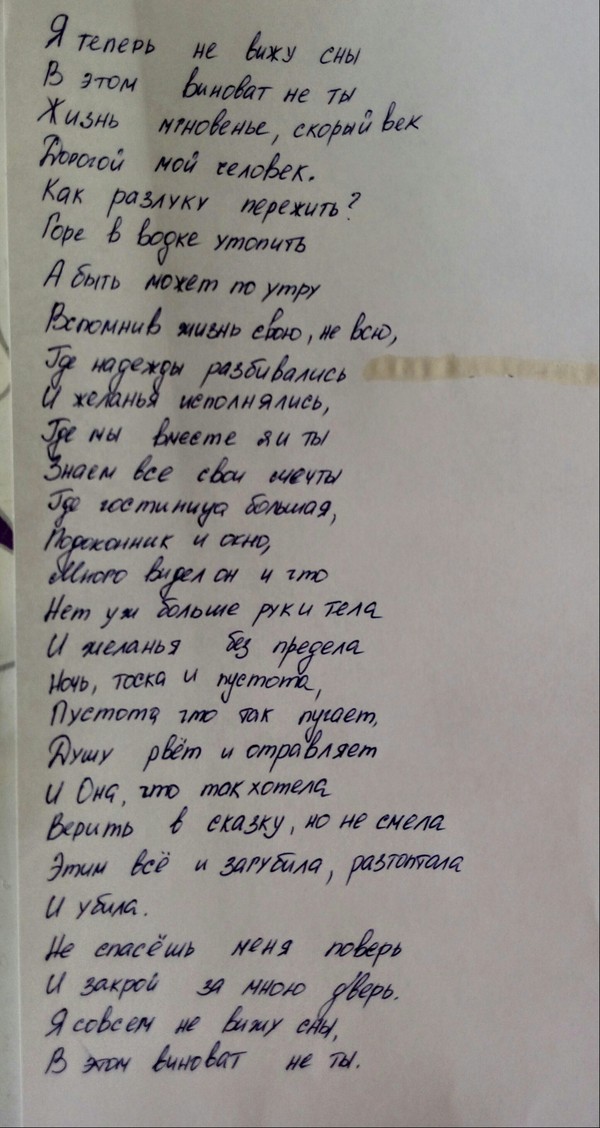 Я теперь не вижу сны
В этом виноват не ты
Жизнь мгновенье, скорый век
Дорогой мой человек.
Как разлуку пережить?
Горе в водке утопить
А быть может по утру
Вспомнив жизнь свою, не всю,
Где надежды разбивались
И желанья исполнялись,
Где мы вместе я и ты
Знаем все свои мечты
Где гостиница большая,
Подоконник и окно,
Много видел он и что
Нет уж больше рук и тела
И желанья без предела
Ночь, тоска и пустота,
Пустота что так пугает,
Душу рвёт и отравляет
И Она, что так хотела
Верить в сказку, но не смела
Этим всё и загубила, разтоптала
И убила.
Не спасёшь меня поверь
И закрой за мною дверь.
Я совсем не вижу сны,
В этом виноват не ты.